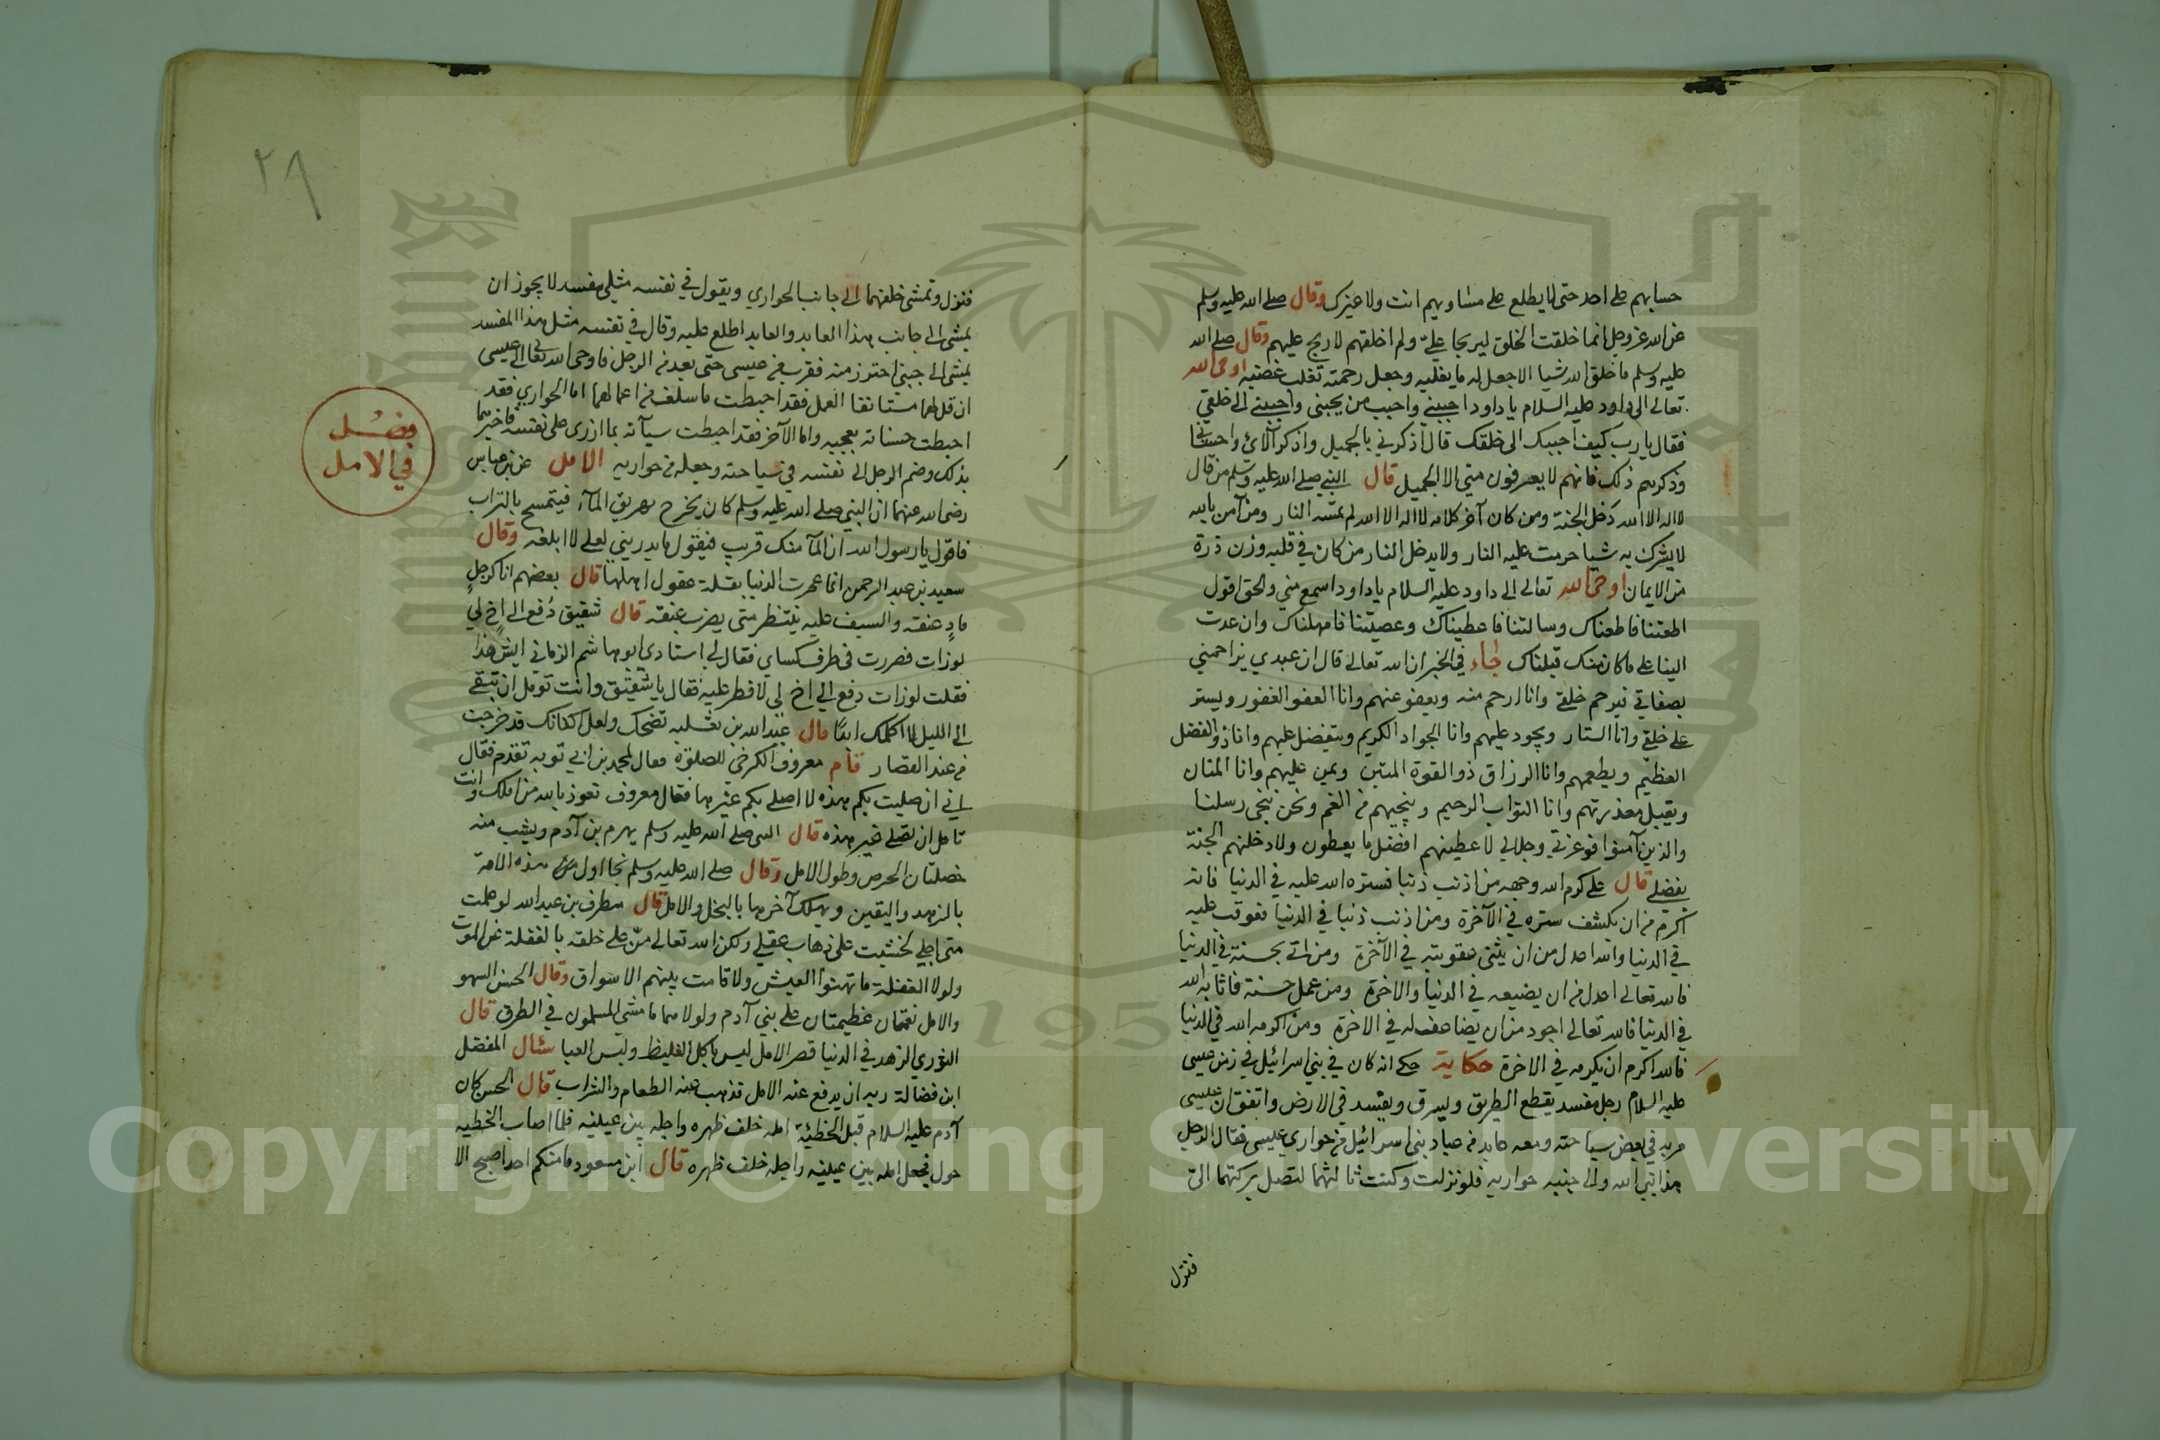 حسابهم على احد حتى لا يطلع على مساويهم انت ولا غيرك وقال صلى الله عليه وسلم
عن الله عز وجل انما خلقت الخلق ليربحا علي ولم اخلقهم لاربح عليهم وقال صلى الله
عليه وسلم ما خلق الله شيا الا جعل له ما يغلبه وجعل رحمته تغلب غضبه اوحى الله
تعالى الى داود عليه السلام يا داود احببني واحبب من يحبني واحببني الى خلقي
فقال يا رب كيف احببك الى خلقك قال اذكرني بالجميل واذكر آلائي واحساني
وذكرهم ذلك فانهم لا يعرفون مني الا الجميل قال النبي صلى الله عليه وسلم من قال
لا اله الا الله دخل الجنة ومن كان آخر كلامه لا اله الا الله لم تمسه النار ومن آمن بالله
لا يشرك به شيا حرمت عليه النار ولا يدخل النار من كان في قلبه وزن ذرة
من الايمان اوحى الله تعالى الى داود عليه السلام يا داود اسمع مني والحق اقول
اطعتنا فاطعناك وسالتنا فاعطيناك وعصيتنا فامهلناك وان عدت
الينا على ما كان منك قبلناك جاء في الخبر ان الله تعالى قال ان عبدي يزاحمني
بصفاتي فيرحم خلقي وانا ارحم منه ويعفو عنهم وانا العفو الغفور ويستر
على خلقي وانا الستار ويجود عليهم وانا الجواد الكريم ويتفضل عليهم وانا ذو الفضل
العظيم ويطعمهم وانا الرزاق ذو القوة المتين ويمن عليهم وانا المنان
ويقبل معذرتهم وانا التواب الرحيم وينجيهم من الغم ونحن ننجى رسلنا
والذين آمنوا فوعزتي وجلالي لاعطينهم افضل ما يعطون ولادخلنهم الجنة
بفضلي قال علي كرم الله وجهه من اذنب ذنبا فستره الله عليه في الدنيا فانه
اكرم من ان يكشف ستره في الآخرة ومن اذنب ذنبا في الدنيا فعوقب عليه
في الدنيا والله اعدل من ان يثنى عقوبته في الآخرة ومن اتى بحسنة في الدنيا
فالله تعالى اعدل من ان يضيعه في الدنيا والاخرة ومن عمل حسنة فاثابه الله
في الدنيا فالله تعالى اجود من ان يضاعف له في الاخرة ومن اكرمه الله في الدنيا
فالله اكرم ان يكرمه في الاخرة حكاية حكى انه كان في بني اسرائيل في زمن عيسى
عليه السلام رجل مفسد يقطع الطريق ويسرق ويفسد في الارض واتفق ان عيسى
مر به في بعض سياحته ومعه عابد من عباد بني اسرائيل من حواري عيسى فقال الرجل
هذا نبي الله والى جنبه حواريه فلو نزلت وكنت ثالثهما لتصل بركتهما الى
فنزل
٢٩
فنزل وتمشى خلفهما الى جانب الحواري ويقول في نفسه مثلى مفسد لا يجوز ان
يمشى الى جانب هذا العابد والعابد اطلع عليه وقال في نفسه مثل هذا المفسد
يمشى الى جنبي احترز منه فقرب من عيسى حتى بعد من الرجل فاوحى الله تعالى الى عيسى
ان قل لهما مستانفا العمل فقد احبطت ما سلف من اعمالهما اما الحواري فقد
احبطت حسناته بعجبه واما الآخر فقد احبطت سيآته بما ازرى على نفسه فاخبرهما
بذلك وضم الرجل الى نفسه في سياحته وجعله من حواريه الامل عن بن عباس
فصل
في الامل
رضى الله عنهما ان النبي صلى الله عليه وسلم كان يخرج يهريق المآء فيتمسح بالتراب
فاقول يا رسول الله ان المآ منك قريب فيقول ما يدريني لعلى لا ابلغه وقال
سعيد بن عبد الرحمن انما عمرت الدنيا بقلة عقول اهلها قال بعضهم انا كرجل
ماد عنقه والسيف عليه ينتظر متى يضرب عنقه قال شقيق دفع الى اخ لي
لوزات فصررت في طرف كساي فقال لي استادي ابو هاشم الزماني ايش هذا
فقلت لوزات دفع الي اخ لي لافطر عليه فقال يا شقيق وانت تومل ان تبقى
الى الليل لا اكلمك ابدا قال عبد الله بن ثعلبة تضحك ولعل اكفانك قد خرجت
من عند القصار قام معروف الكرخى للصلوة فقال لمحمد بن ابي توبه تقدم فقال
اني ان صليت بكم هذه لا اصلى بكم غيرها فقال معروف نعوذ بالله من املك وانت
تامل ان تصلى غير هذه قال النبي صلى الله عليه وسلم يهرم بن آدم ويشب منه
خصلتان الحرص وطول الامل وقال صلى الله عليه وسلم نجا اول من هذه الامة
بالزهد واليقين ويهلك آخرها بالبخل والامل قال مطرف بن عبد الله لو علمت
متى اجلي لخشيت على ذهاب عقلي ولكن الله تعالى من على خلقه بالغفلة عن الموت
ولولا الغفلة ما تهنوا العيش ولا قامت بينهم الاسواق وقال الحسن السهو
والامل نعمتان عظيمتان على بني آدم ولولاهما ما مشى المسلمون في الطرق قال
الثوري الزهد في الدنيا قصر الامل ليس باكل الغليظ ولبس العبا سئال المفضل
ابن فضالة ربه ان يدفع عنه الامل فذهب عنه الطعام والشراب قال الحسن كان
آدم عليه السلام قبل الخطيئة امله خلف ظهره واجله بين عينيه فلما اصاب الخطيه
حول فجعل امله بين عينيه واجله خلف ظهره قال ابن مسعود ما منكم احد اصبح الا
1957
Copyright © King Saud University